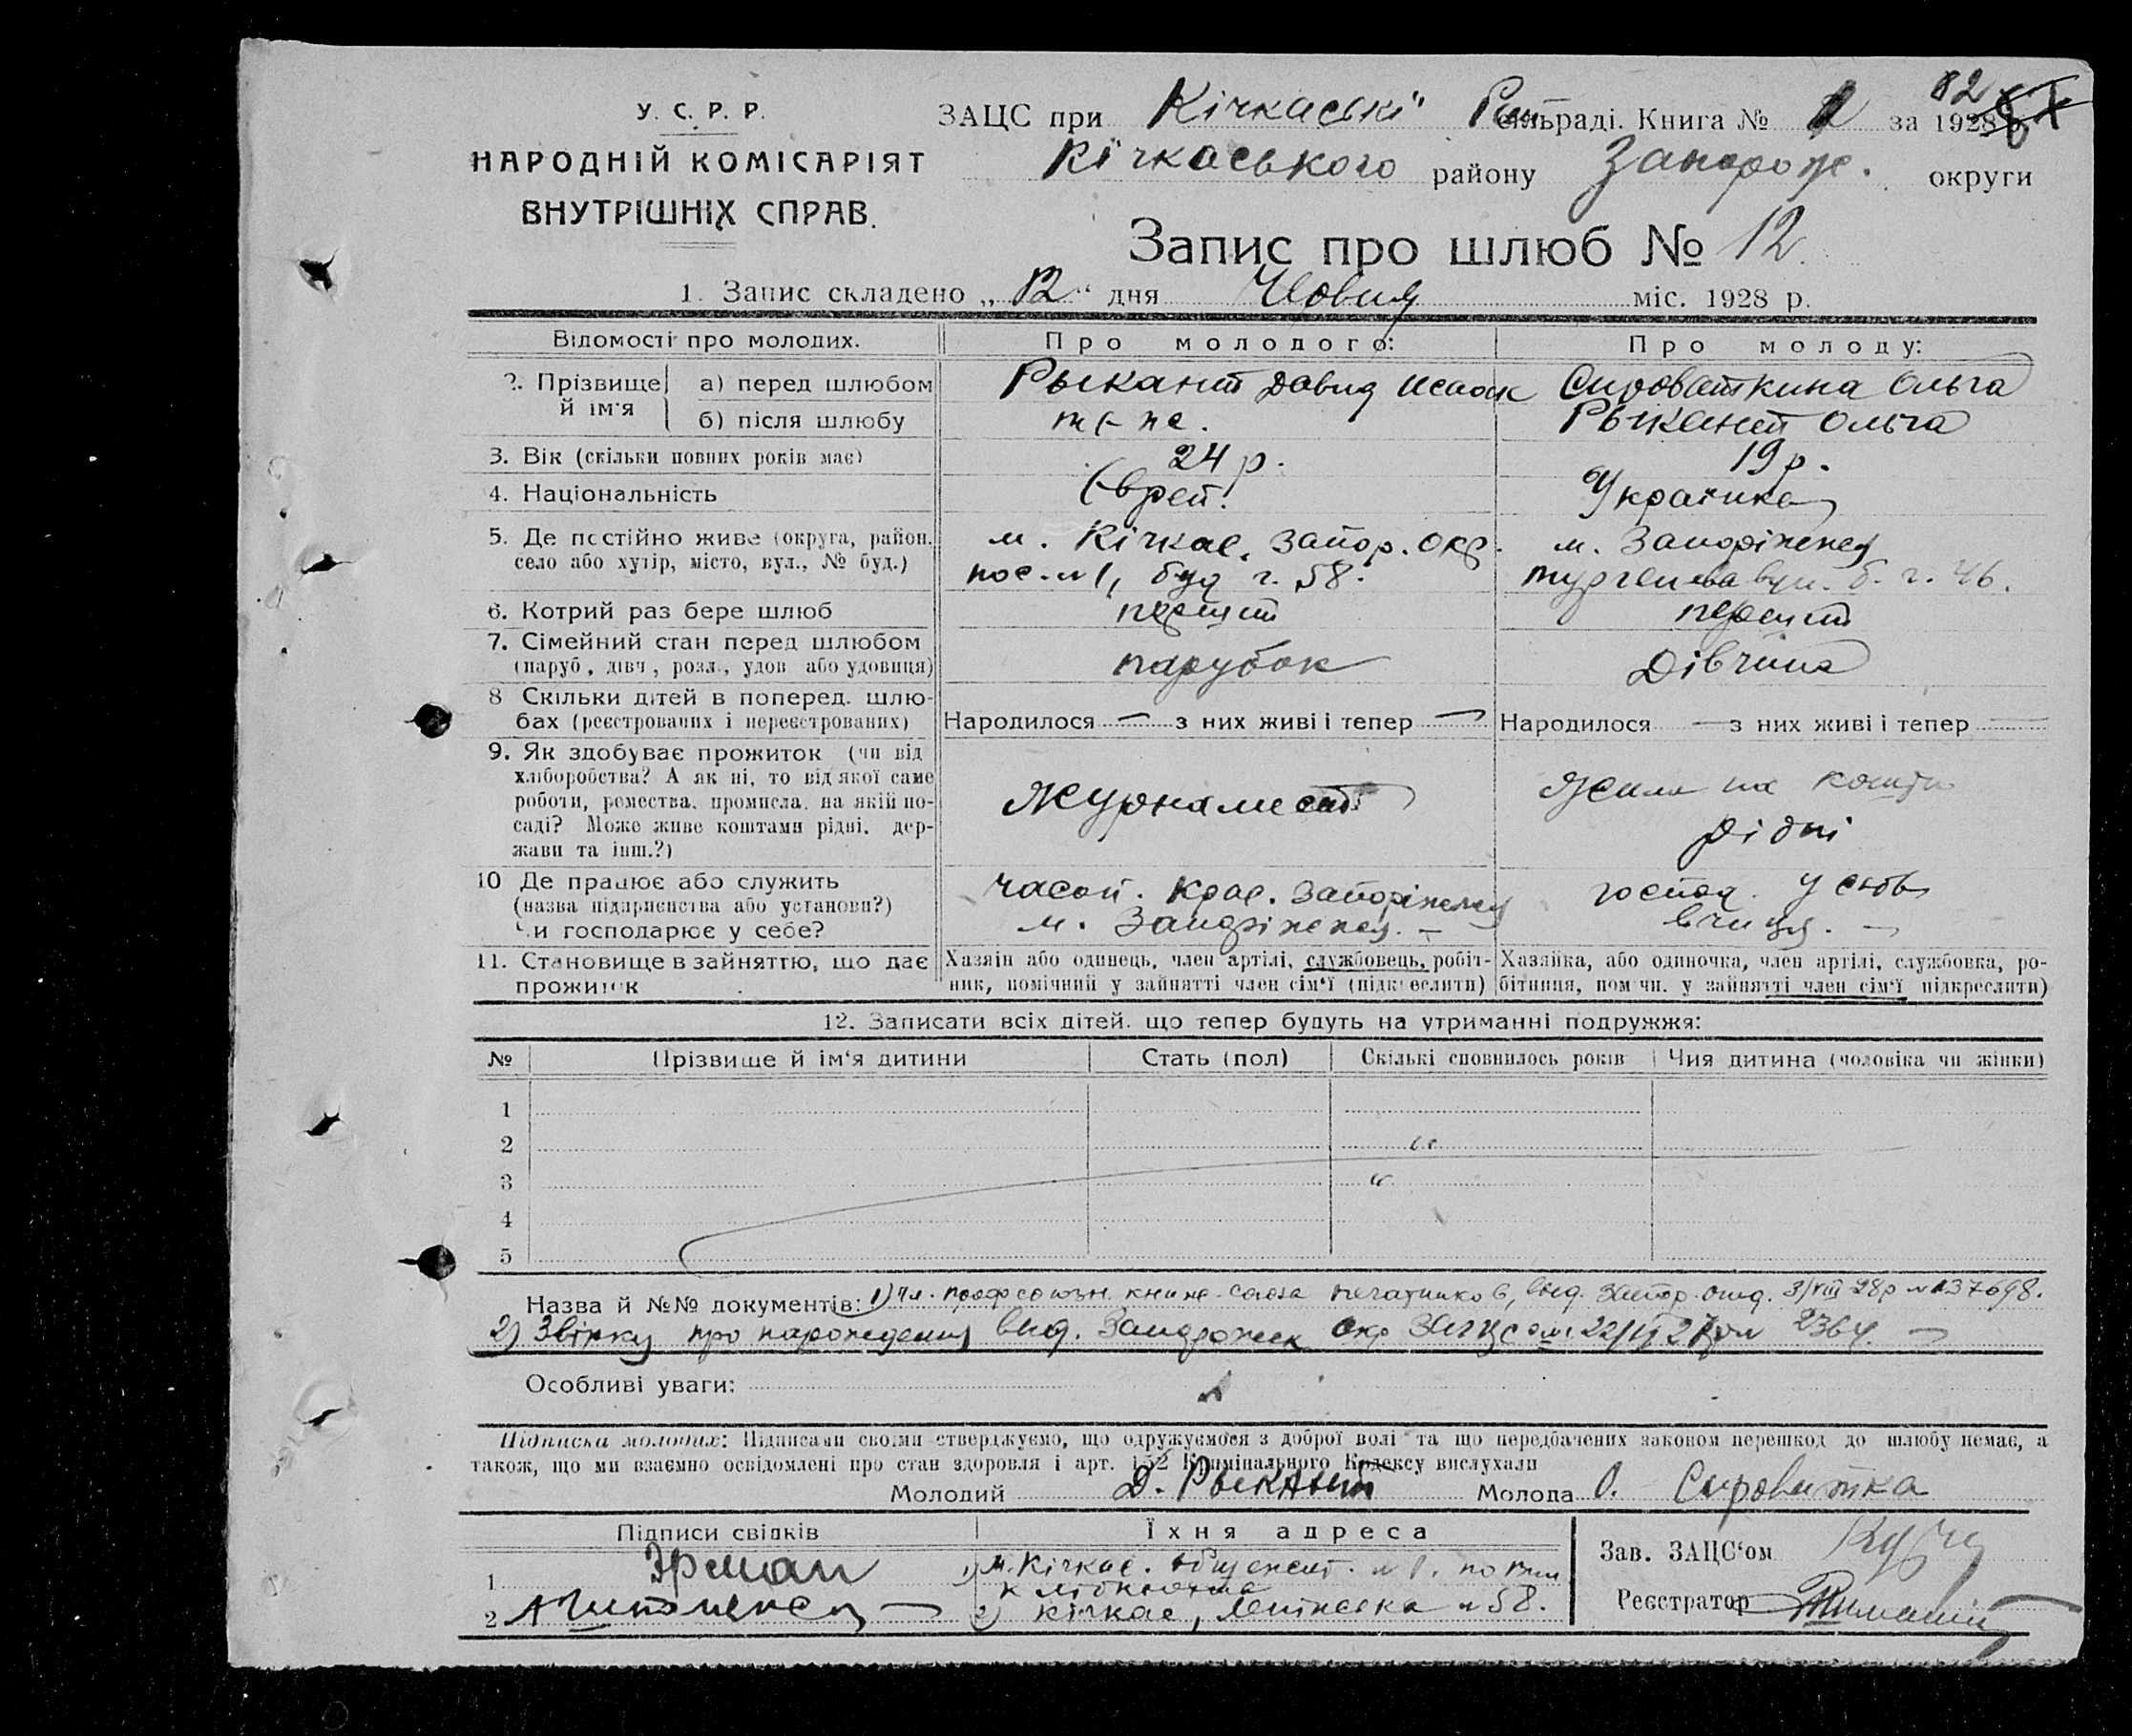 82
У. С. Р. Р.
НАРОДНІЙ КОМІСАРІЯТ
ВНУТРІШНІХ СПРАВ.
ЗАЦС при Кічкаські Сільраді. Книга № за 1928
Кічкаського району Запорож. округи
Запис про шлюб № 12.
1. Запис складено „12“ дня міс. 1928 р.
Відомості про молодих. Про молодого: Про молоду:
2. Прізвище й ім'я а) перед шлюбом Рыкант Давид Исаак Сироваткина Ольга
б) після шлюбу те-же. Рыкант Ольга
3. Вік (скільки повних років має) 24 р. 19 р.
4. Національність Єврей. Українка
5. Де постійно живе (округа, район, м. Кічкас, Запор. Окр. м. Запоріжжя
село або хутір, місто, вул., № буд.) пос. №1, буд ч. 58. Тургенева вул. б. ч. 46.
6. Котрий раз бере шлюб первий первий
7. Сімейний стан перед шлюбом
(паруб, дівч, розл., удов або удовиця) парубок Дівчина
8 Скільки дітей в поперед. шлю-
бах (реєстрованих і нереєстрованих) Народилося — з них живі і тепер — Народилося — з них живі і тепер —
9. Як здобуває прожиток (чи від
хліборобства? А як ні, то від якої саме
роботи, ремества, промисла, на якій по-
саді? Може живе коштами рідні, дер-
жави та інш.?) Журналист на кошти рідні
10 Де працює або служить
(назва підприємства або установи?)
Чи господарює у себе? часоп. Крас. Запоріжжя м. Запоріжжя. —
11. Становище в зайняттю, що дає
прожиток
Хазяїн або одинець, член артілі, службовець, робіт-
ник, помічний у зайнятті член сім'ї (підкреслити)
Хазяйка, або одиночка, член артілі, службовка, ро-
бітниця, помічн. у зайнятті член сім'ї підкреслити)
12. Записати всіх дітей, що тепер будуть на утриманні подружжя:
№ Прізвище й ім'я дитини Стать (пол) Скількі сповнилось років Чия дитина (чоловіка чи жінки)
1
2 "
3 "
4
5
Назва й №№ документів: 1) Чл. профсоюзн. книж. союза печатников, выд. Запор. отд. 3/VIII 28р № 137698.
2) Звірку про народження выд. Запорожск Окр Загсом 2364. —
Особливі уваги:
Підписка молодих: Підписами своїми стверджуємо, що одружуємося з доброї волі та що передбачених законом перешкод до шлюбу немає, а
також, що ми взаємно освідомлені про стан здоровля і арт. 152 Кримінального Кодексу вислухали
Молодий Д. Рыкант Молода О. Сироватка
Підписи свідків Їхня адреса
1 Эрман 1) м. Кічкас.
2 2) Кічкас, Ленінська № 58.
Зав. ЗАЦС‘ом
Реєстратор